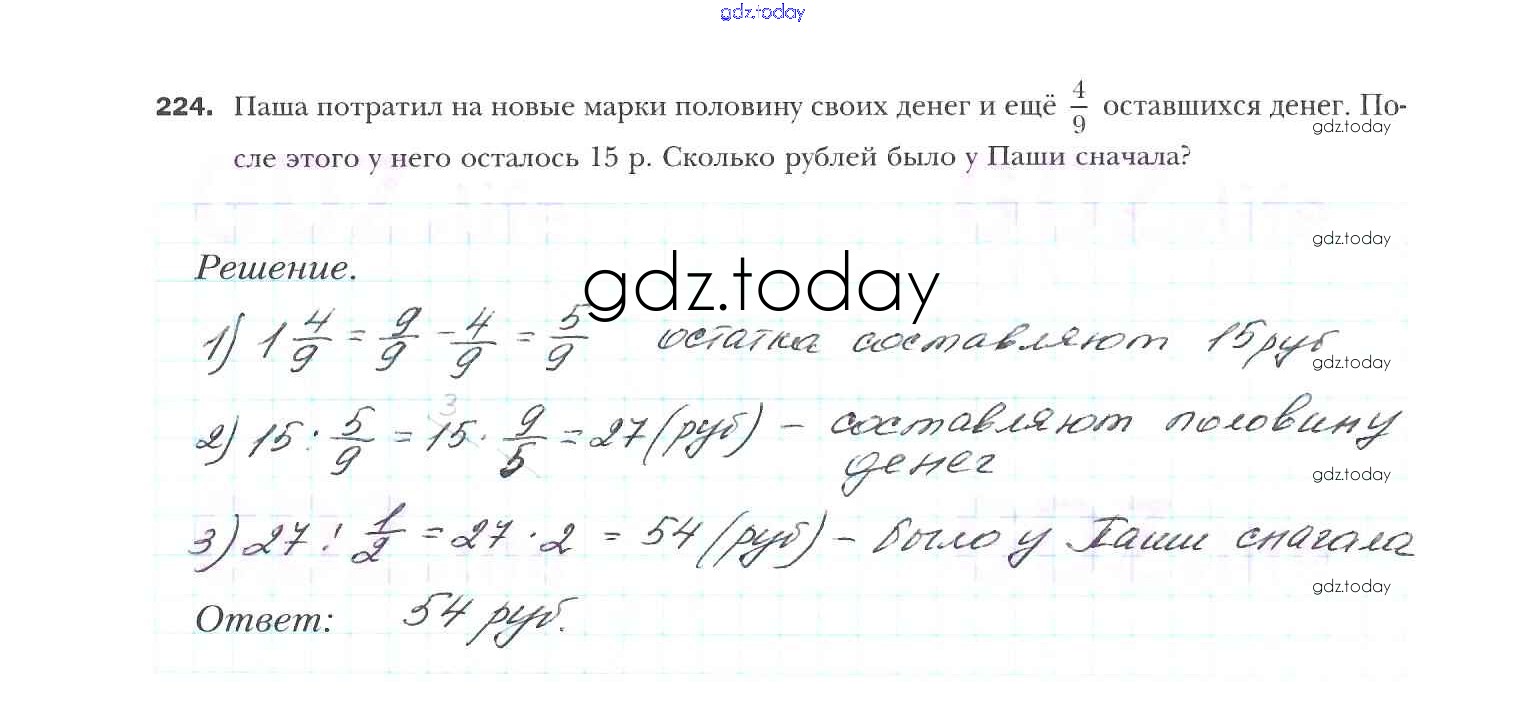 gdz.today
224. Паша потратил на новые марки половину своих денег и ещё 4/9 оставшихся денег. По-
gdz.today
сле этого у него осталось 15 р. Сколько рублей было у Паши сначала?
gdz.today
Решение.
gdz.today
1) 1 4/9 = 9/9 - 4/9 = 5/9 остатка составляют 15 руб
gdz.today
2) 15 : 5/9 = 15 · 9/5 = 27 (руб) – составляют половину
3
денег
gdz.today
3) 27 : 1/2 = 27 · 2 = 54 (руб) – было у Паши сначала
gdz.today
Ответ: 54 руб.